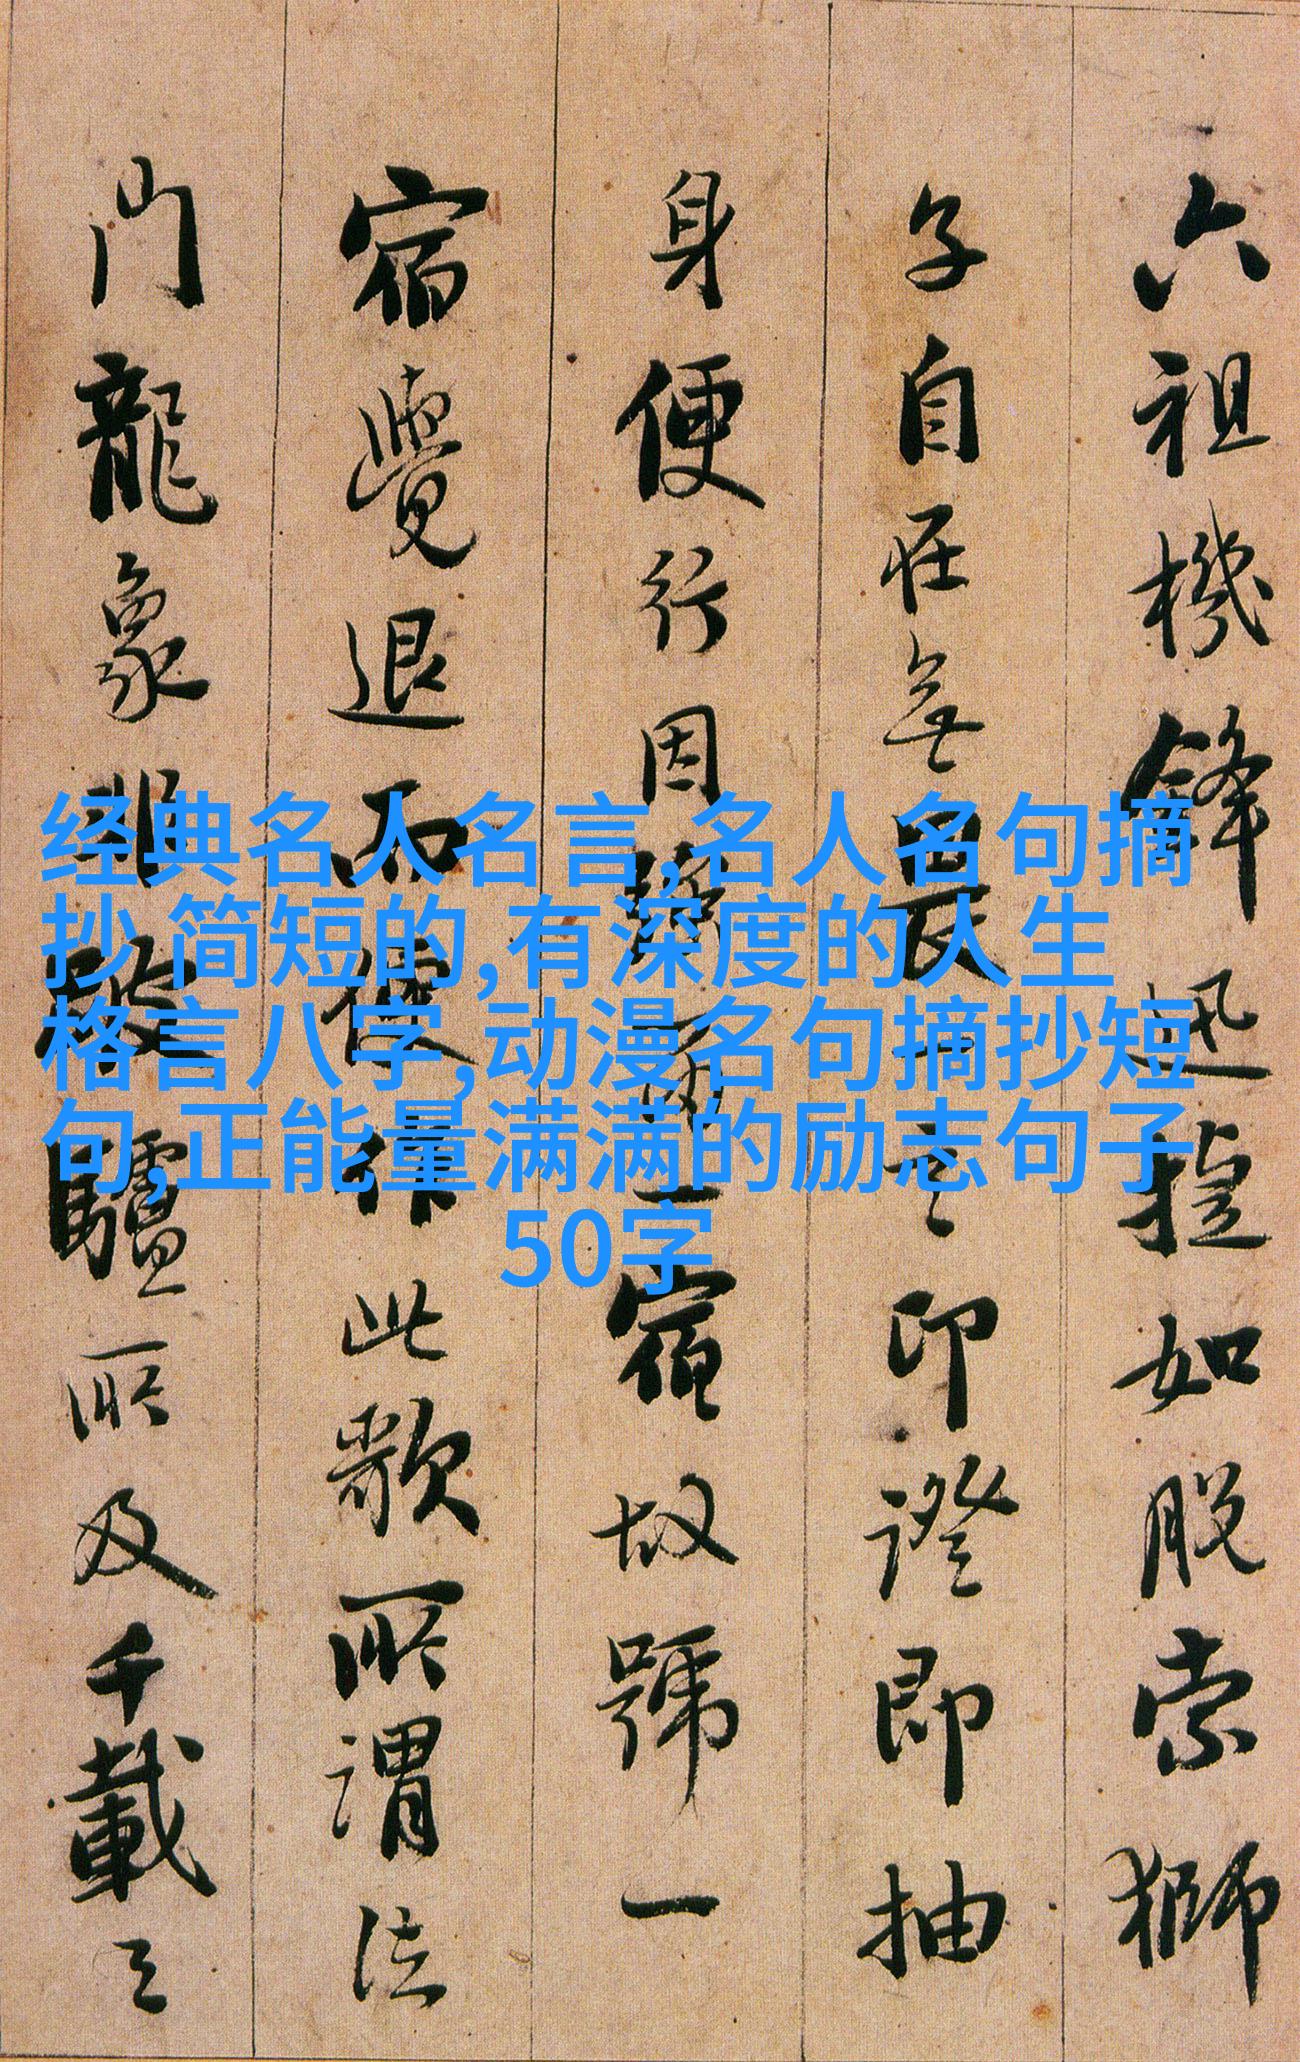 六祖機鋒迅捷如脱索獅
子自在無畏一言印證即抽
身便行因勞一宿故號一
宿覺退而後作此歌所謂法
門龍象非跛驢所及千載之
经典名人名言,名人名句摘
抄 简短的,有深度的人生
格言八字,动漫名句摘抄短
句,正能量满满的励志句子
50字